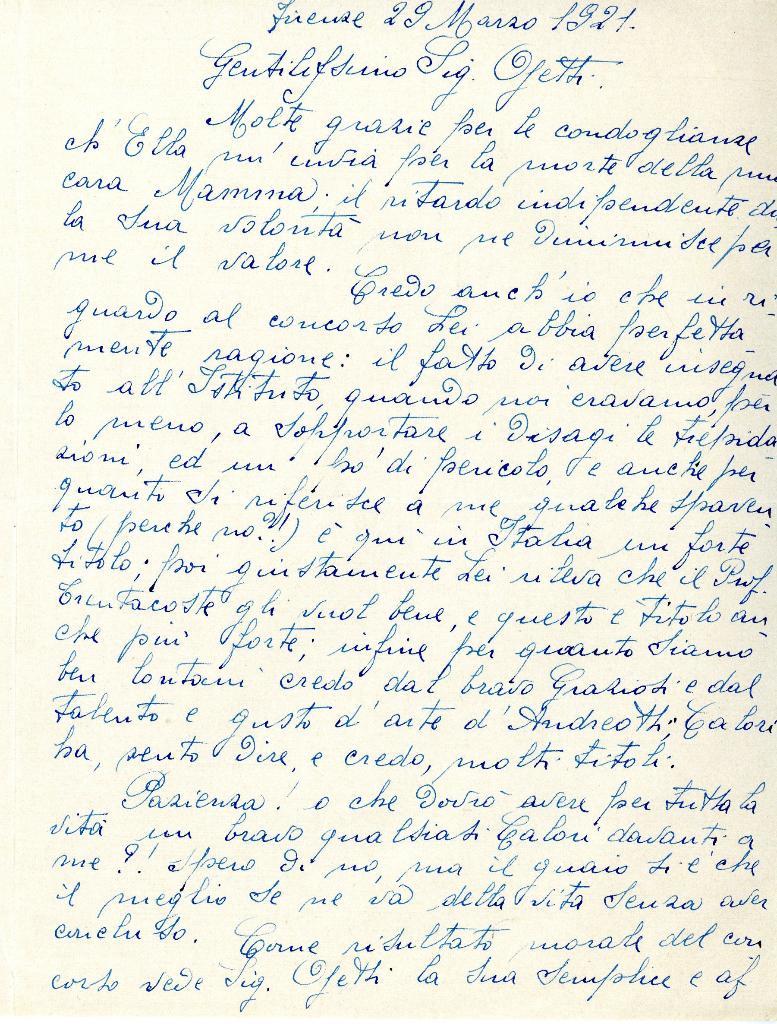 Firenze 29 Marzo 1921.
Gentilissimo Sig. Ojetti.
Molte grazie per le condoglianze
ch' Ella m' invia per la morte della mia
cara Mamma; il ritardo indipendente da
la Sua volontà non ne diminuisce per
me il valore.
Credo anch' io che in ri-
guardo al concorso Lei abbia perfetta
mente ragione: il fatto di avere insegna
to all' Istituto, quando noi eravamo, per
lo meno, a sopportare i disagi le trepida
zioni, ed un po' di pericolo, e anche per
quanto si riferisce a me qualche spaven
to (perche no?!) è qui in Italia un forte
titolo; poi giustamente Lei rileva che il Prof.
Trentacoste gli vuol bene, e questo è titolo an
che più forte; infine per quanto siamo
ben lontani credo dal bravo Graziosi e dal
talento e gusto d' arte d' Andreotti; Calori
ha, sento dire, e credo, molti titoli.
Pazienza! o che dovrò avere per tutta la
vita un bravo qualsiasi Calori davanti a
me?! Spero di no, ma il guaio si è che
il meglio se ne va della vita senza aver
concluso. Come risultato morale del con
corso vede Sig. Ojetti la Sua semplice e af